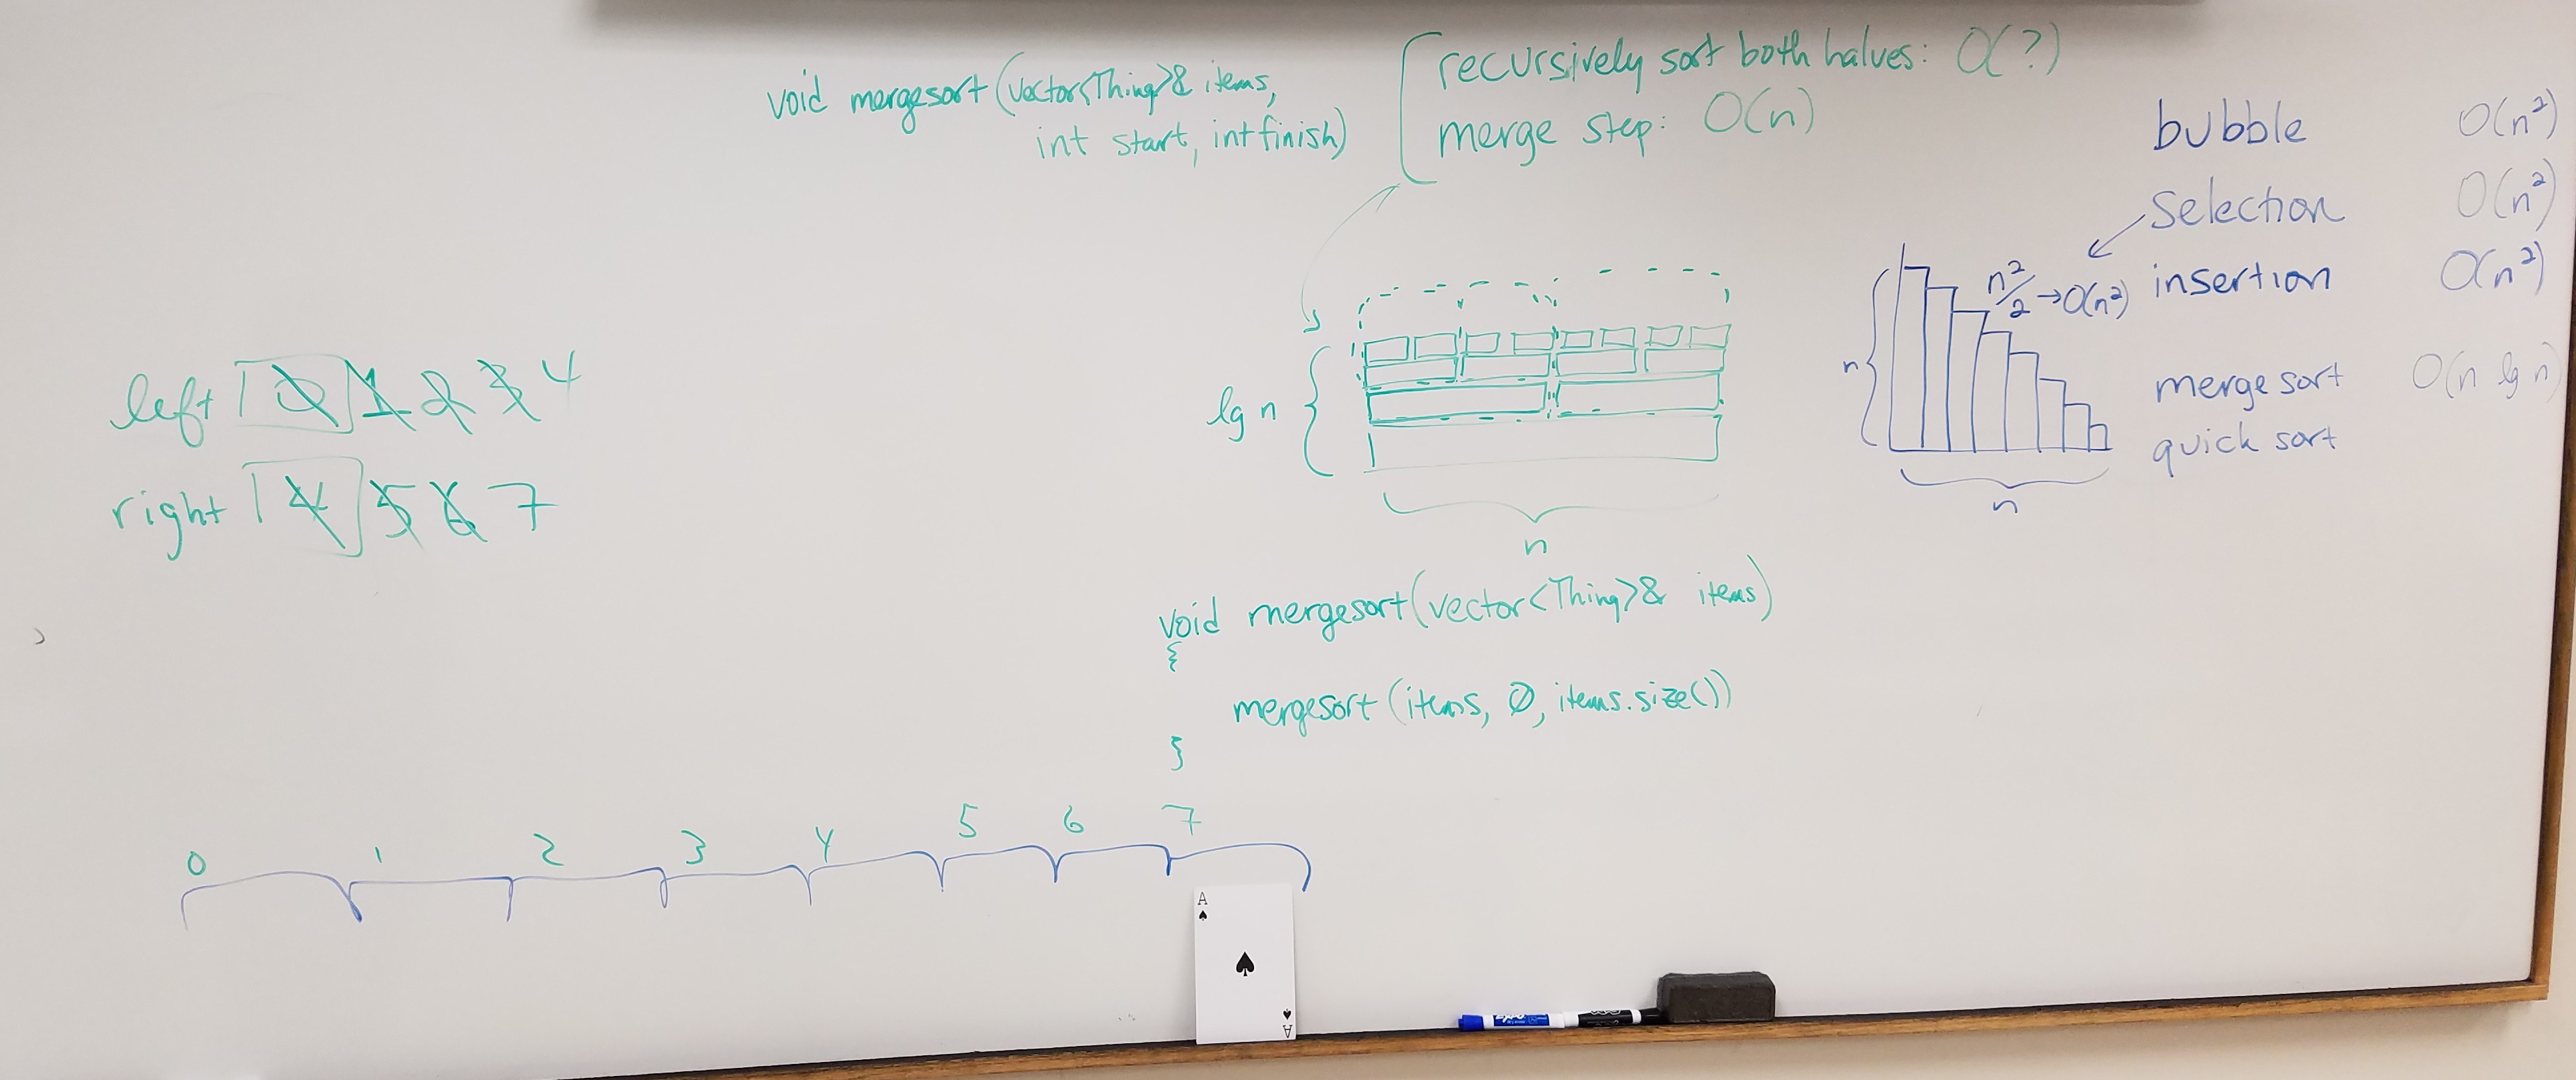 void mergesort(vector<Thing>& items,
int start, int finish)
recursively sort both halves: O(?)
merge step: O(n)
bubble O(n²)
selection O(n²)
insertion O(n²)
merge sort O(n lg n)
quick sort
n²/2 → O(n²)
n
n
lg n
n
left 0 1 2 3 4
right 4 5 6 7
void mergesort(vector<Thing>& items)
{
mergesort(items, Ø, items.size())
}
0 1 2 3 4 5 6 7
A
A